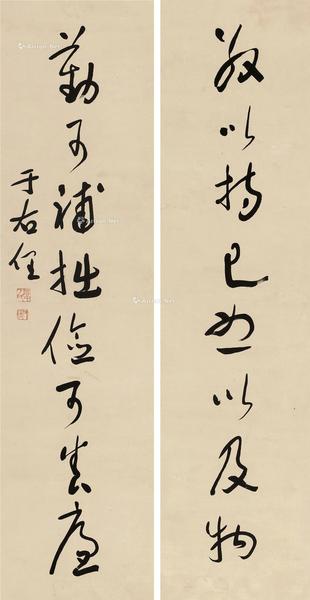 敬以持己恕以及物
勤可補拙儉可養廉
于右任